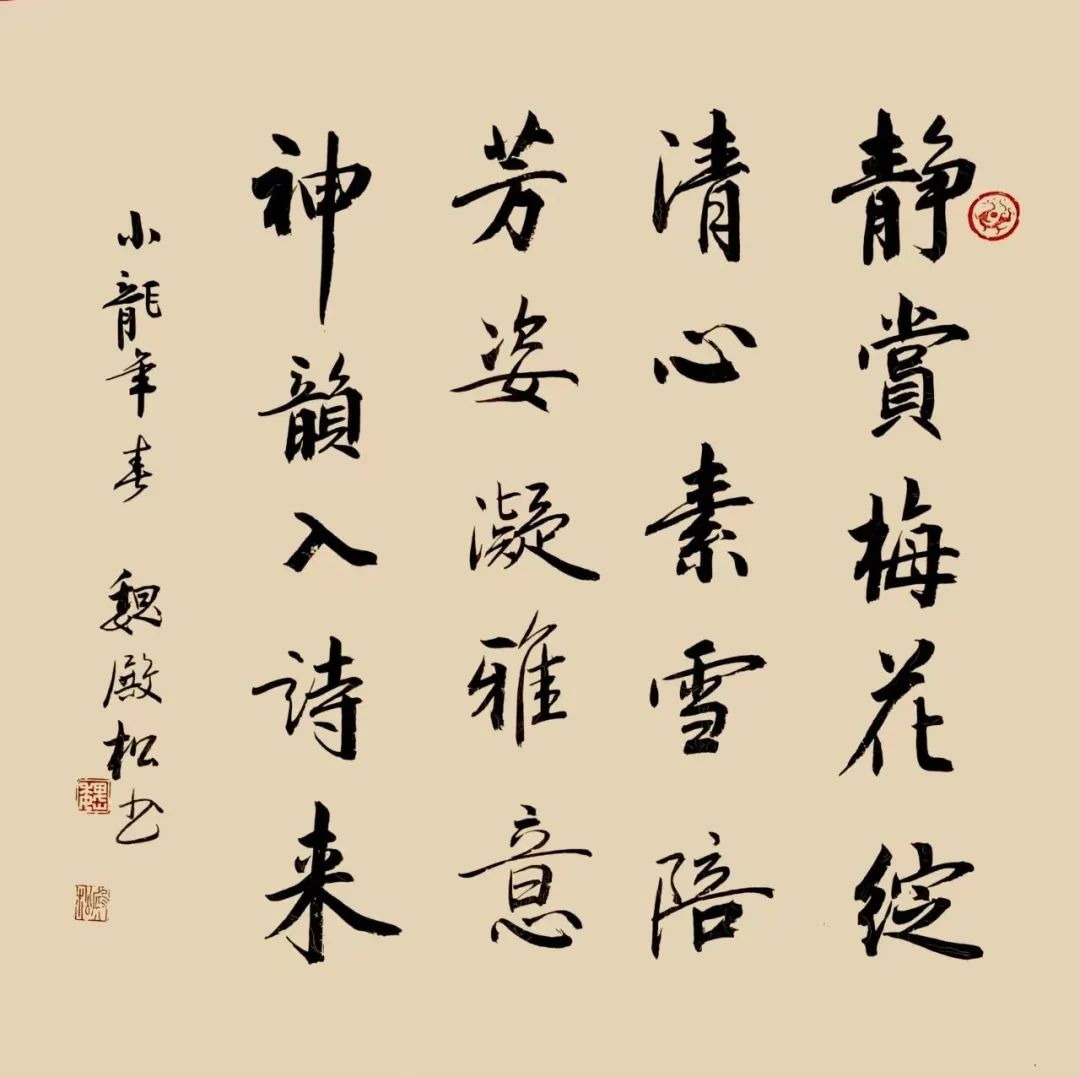 静賞梅花綻
清心素雪陪
芳姿凝雅意
神韻入詩来
小龍年春 魏殿松书